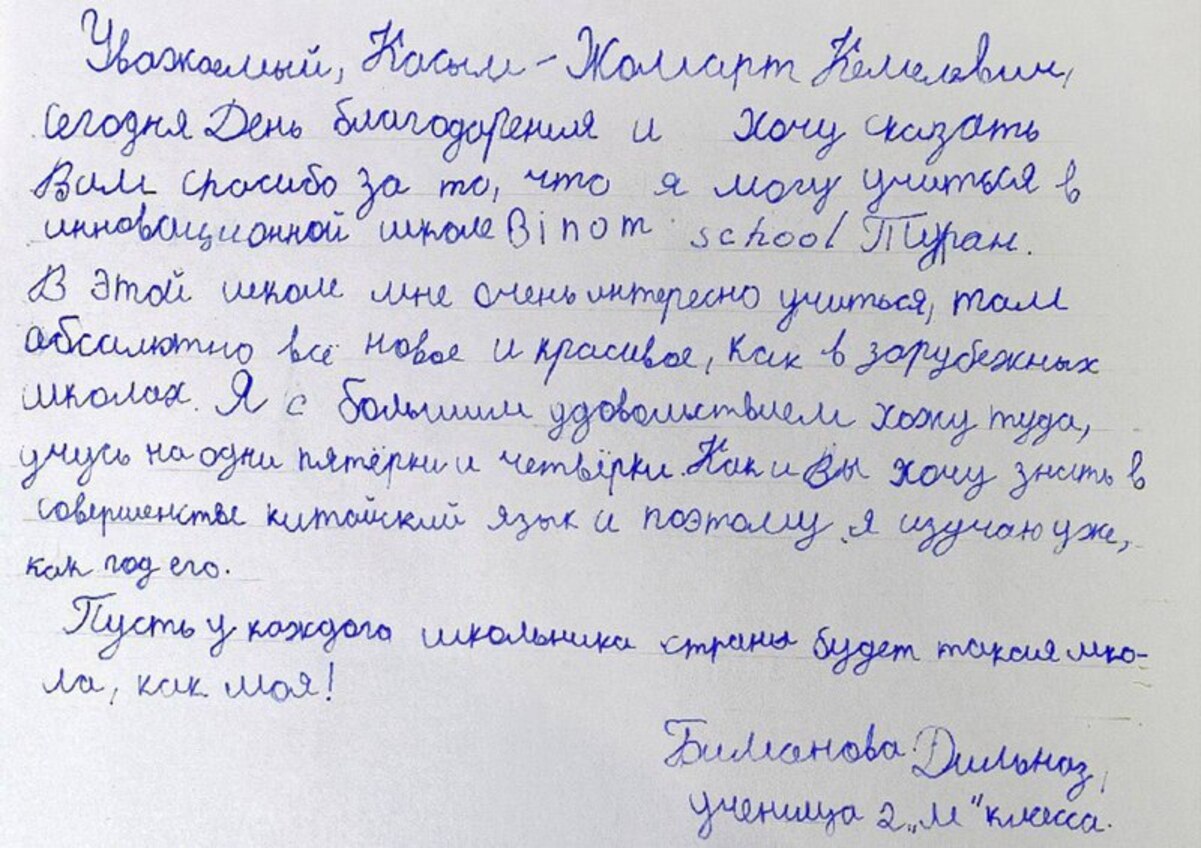 Уважаемый, Касым-Жомарт Кемелович,
сегодня День благодарения и хочу сказать
Вам спасибо за то, что я могу учиться в
инновационной школе Binom school Туран.
В этой школе мне очень интересно учиться, там
абсалютно всё новое и красивое, как в зарубежных
школах. Я с большим удовольствием хожу туда,
учусь на одни пятёрки и четвёрки. Как и Вы хочу знать в
совершенстве китайский язык и поэтому я изучаю уже,
как год его.
Пусть у каждого школьника страны будет такая шко-
ла, как моя!
Биманова Дильназ,
ученица 2 „М" класса.